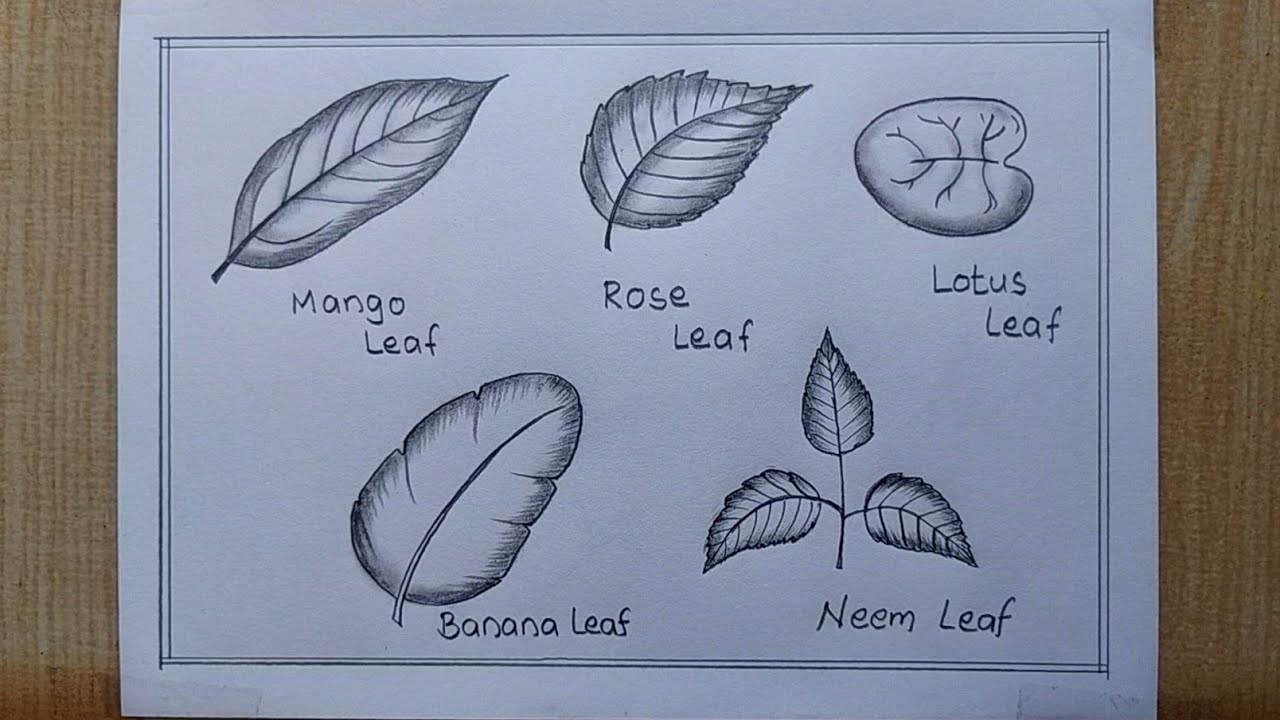 Mango
Leaf
Rose
Leaf
Lotus
Leaf
Banana Leaf
Neem Leaf